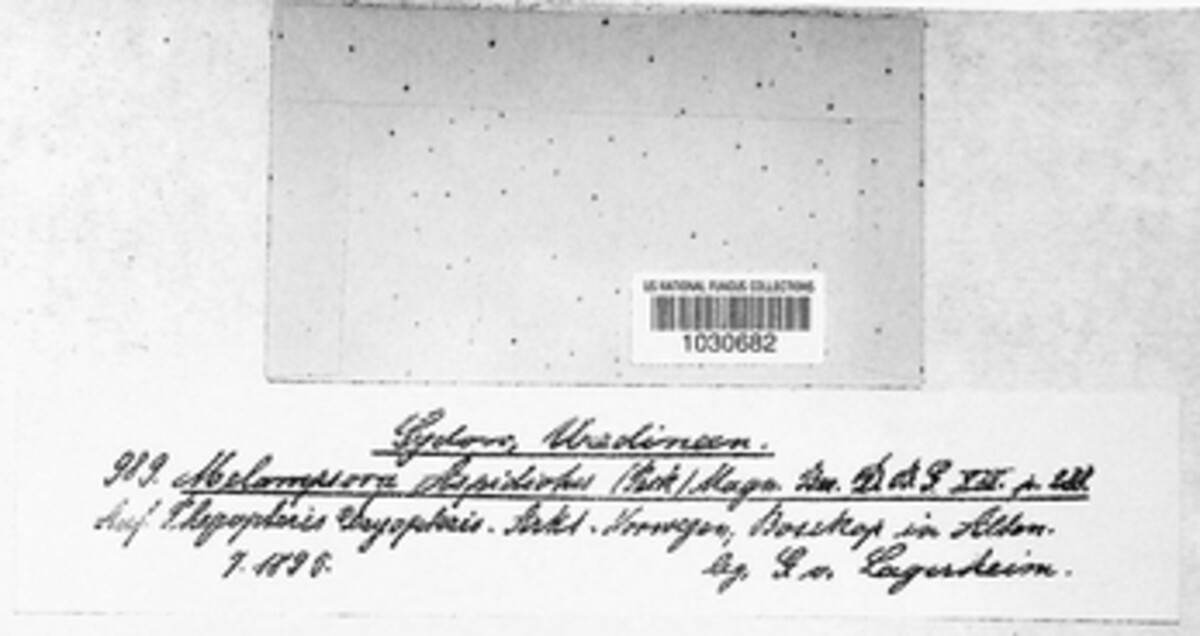 US NATIONAL FUNGUS COLLECTIONS
1030682
Sydow, Uredineen.
989. Melampsora Aspidiotus (Peck) Magn. Ber. D. B. G. XIII. p.
Auf Phegopteris Dryopteris. Norwegen, Bosekop in Alten.
7. 1895. leg. G. v. Lagerheim.